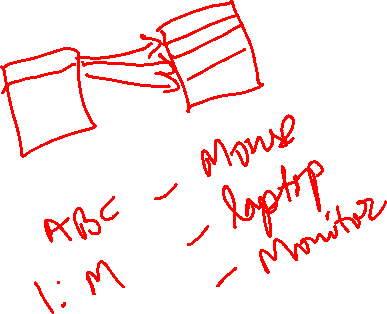 ABC - Mouse
- laptop
1:M - Monitor